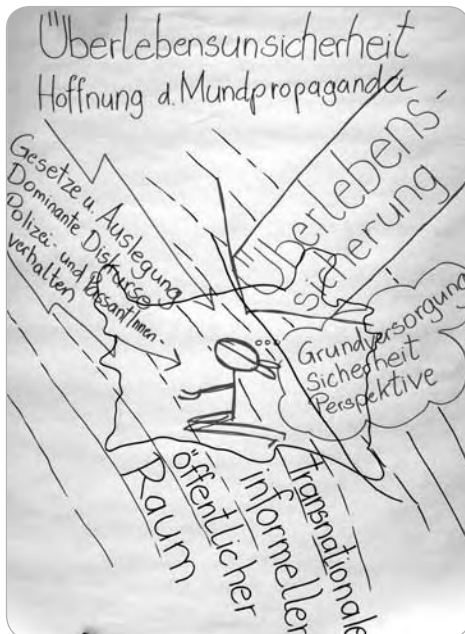 Überlebensunsicherheit
Hoffnung d. Mundpropaganda
Gesetze u. Auslegung
Dominante Diskurse
Polizei- und PassantInnen-
verhalten
Überlebens-
sicherung
Grundversorgung
Sicherheit
Perspektive
Raum
öffentlicher
informeller
transnationaler